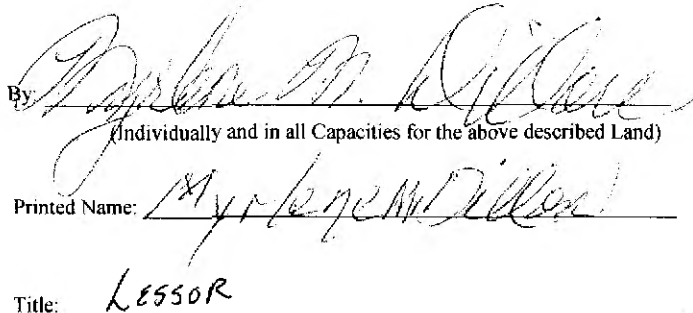 By Myrlene M. Dillon
(Individually and in all Capacities for the above described Land)
Printed Name: Myrlene M Dillon
Title: LESSOR